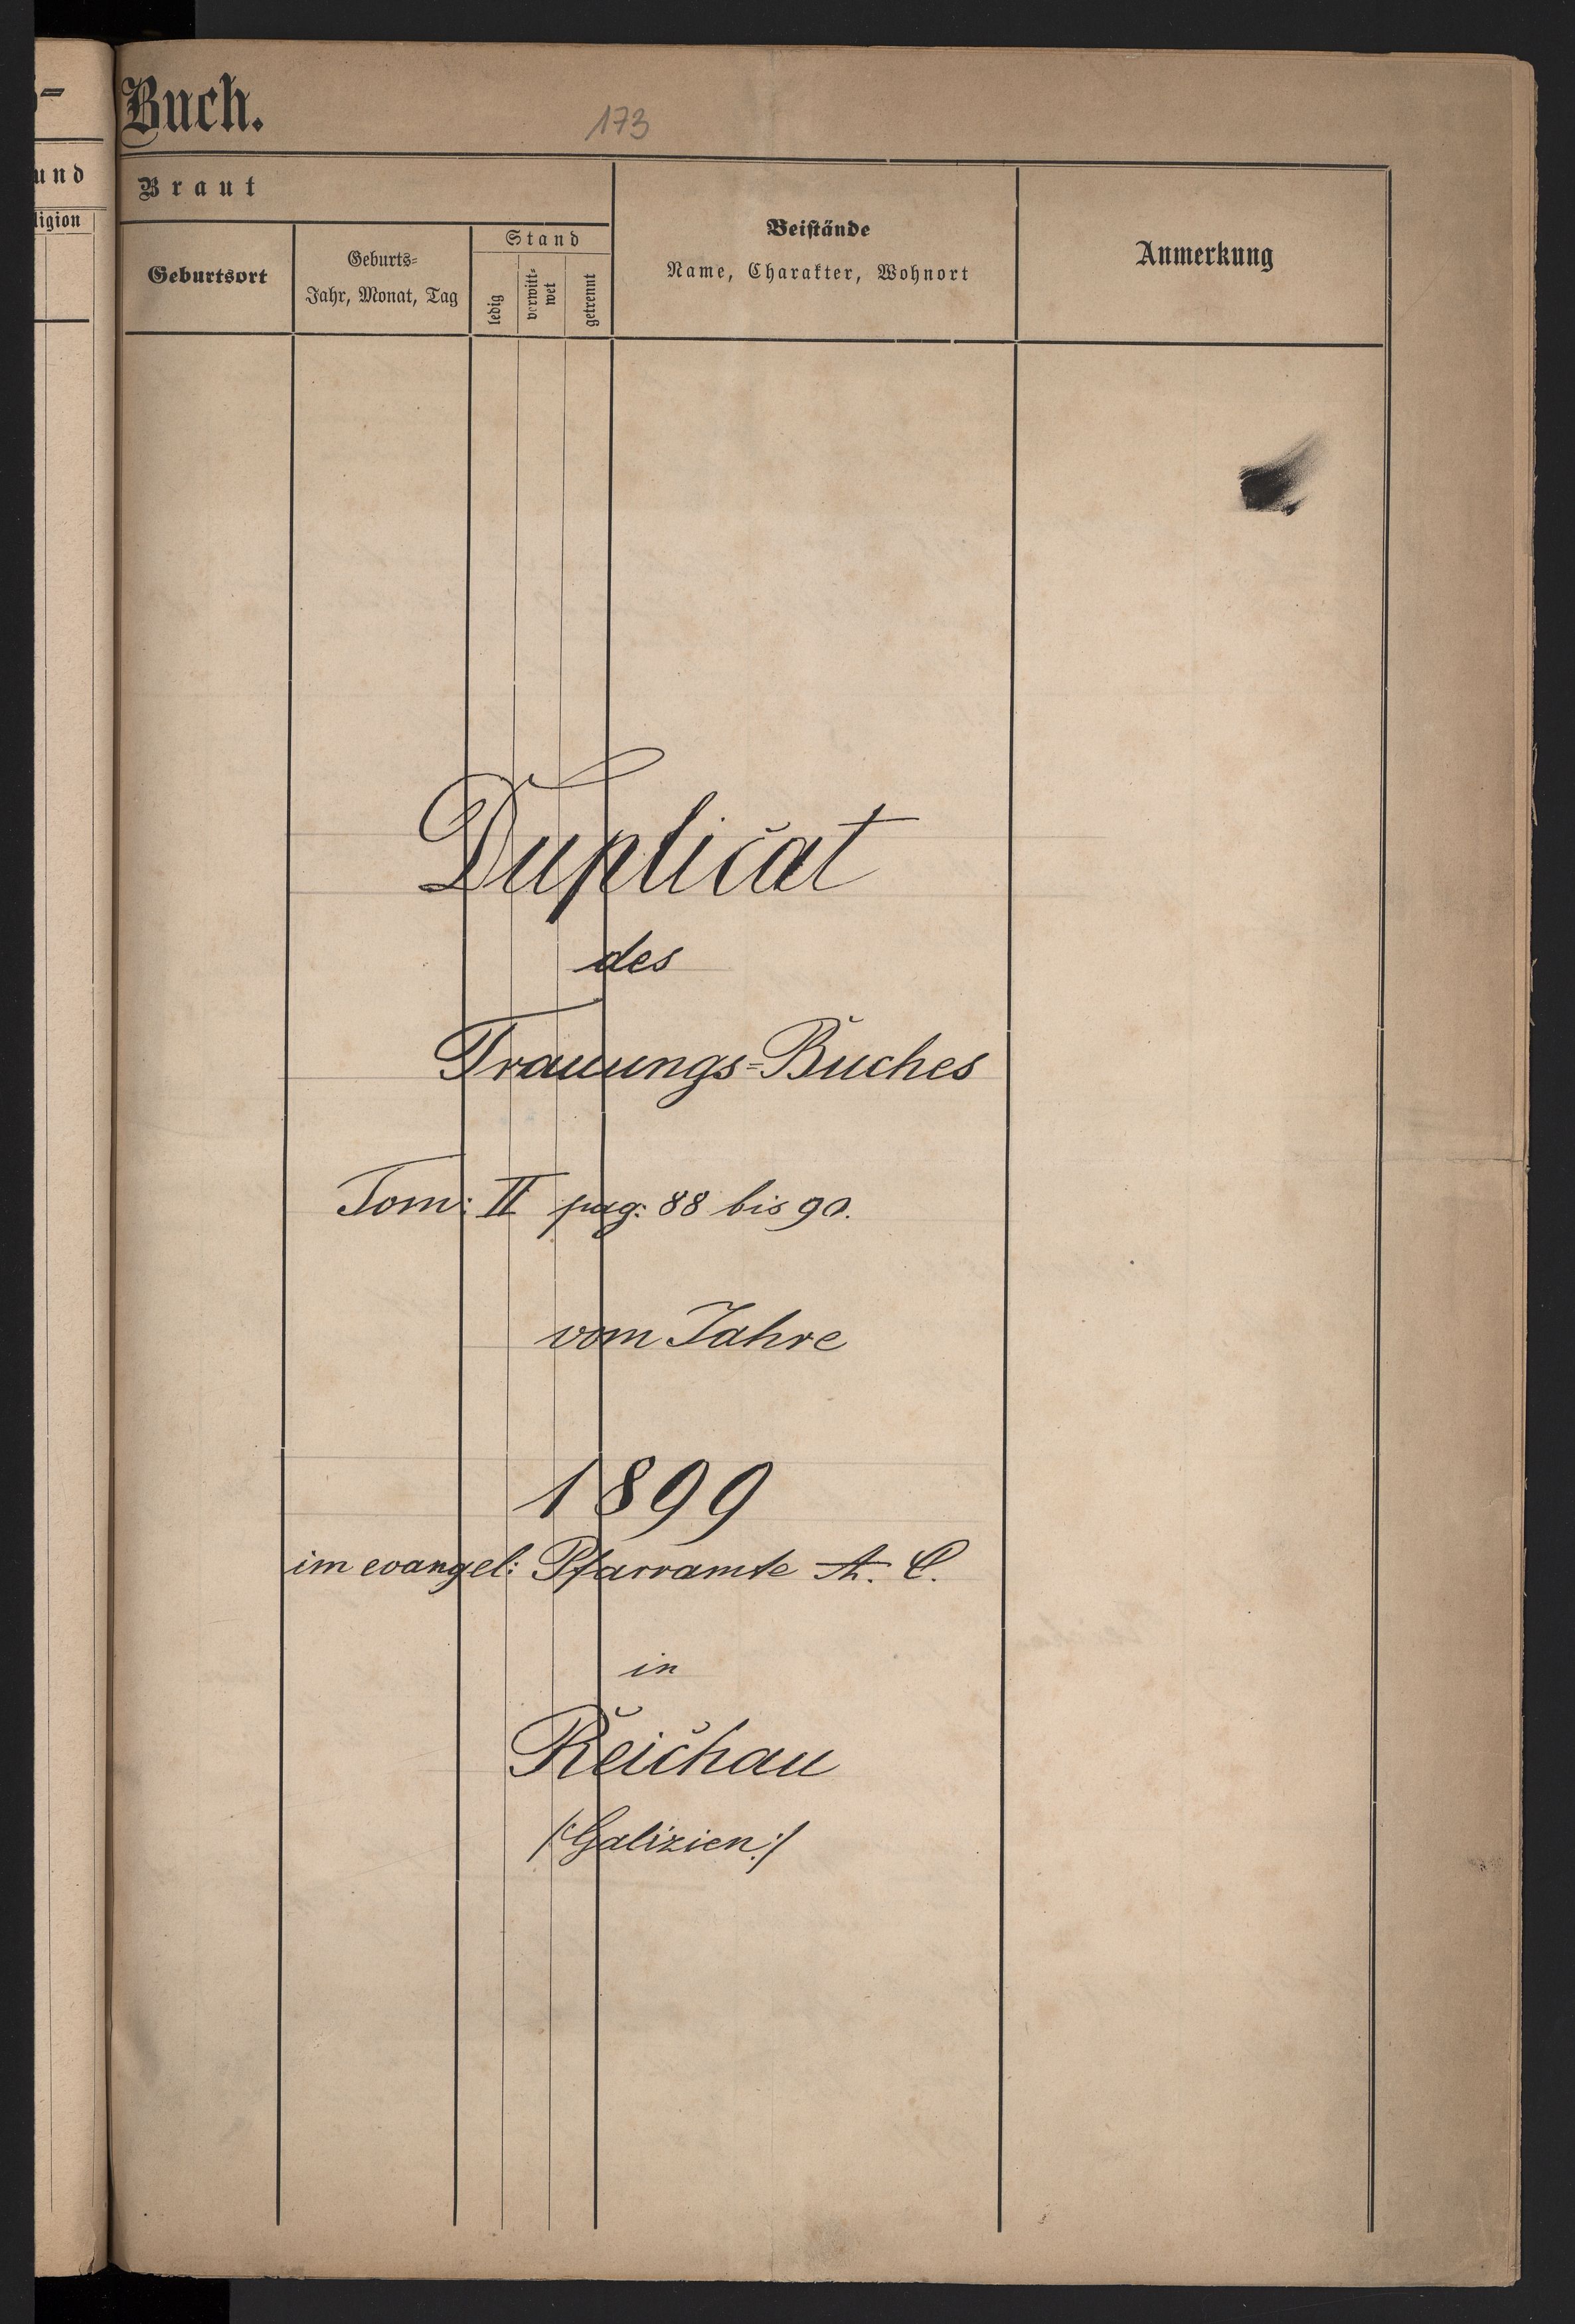 Buch.
173
und
ligion
Braut
Geburtsort
Geburts=
Jahr, Monat, Tag
Stand
ledig
verwitt-
wet
getrennt
Beistände
Name, Charakter, Wohnort
Anmerkung
Duplicat
des
Trauungs=Buches
Tom: II pag: 88 bis 90.
vom Jahre
1899
im evangel: Pfarramte A. C.
in
Reichau
/:Galizien:/